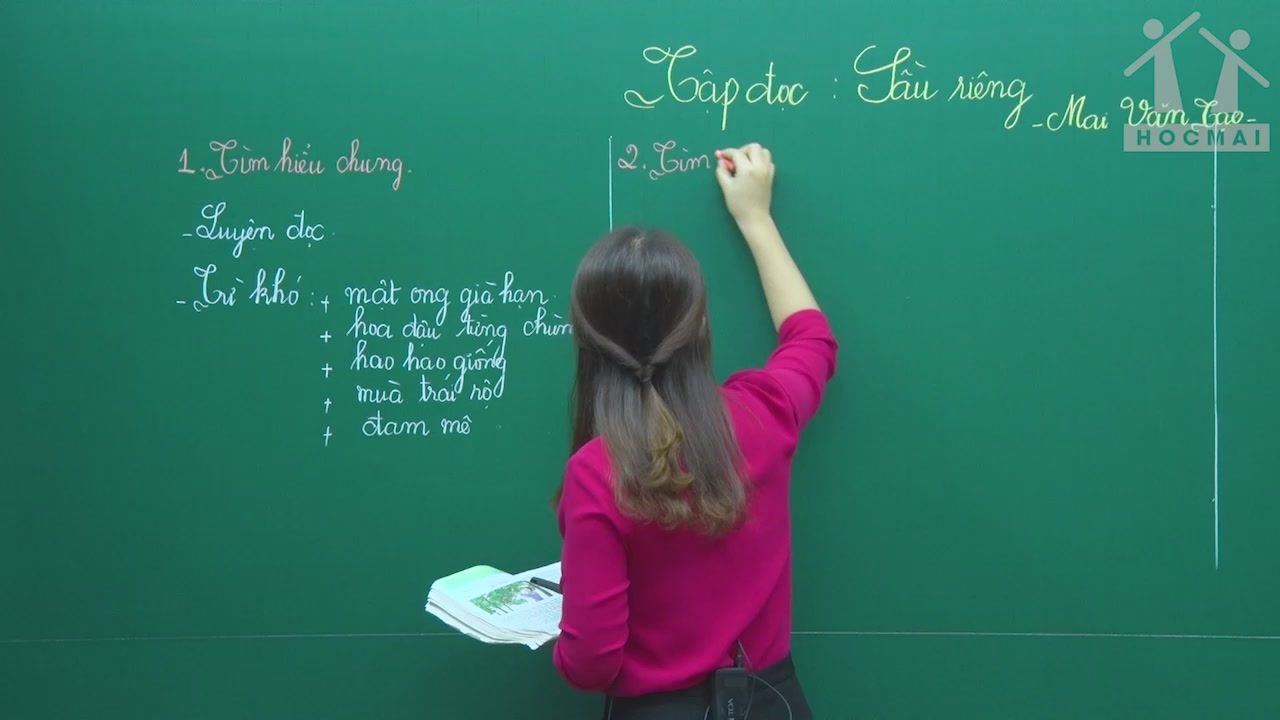 Tập đọc : Sầu riêng
- Mai Văn Tạo -
HOCMAI
1. Tìm hiểu chung.
- Luyện đọc.
- Từ khó : + mật ong già hạn
+ hoa đậu từng chùm
+ hao hao giống
+ mùa trái rộ
+ đam mê
2. Tìm